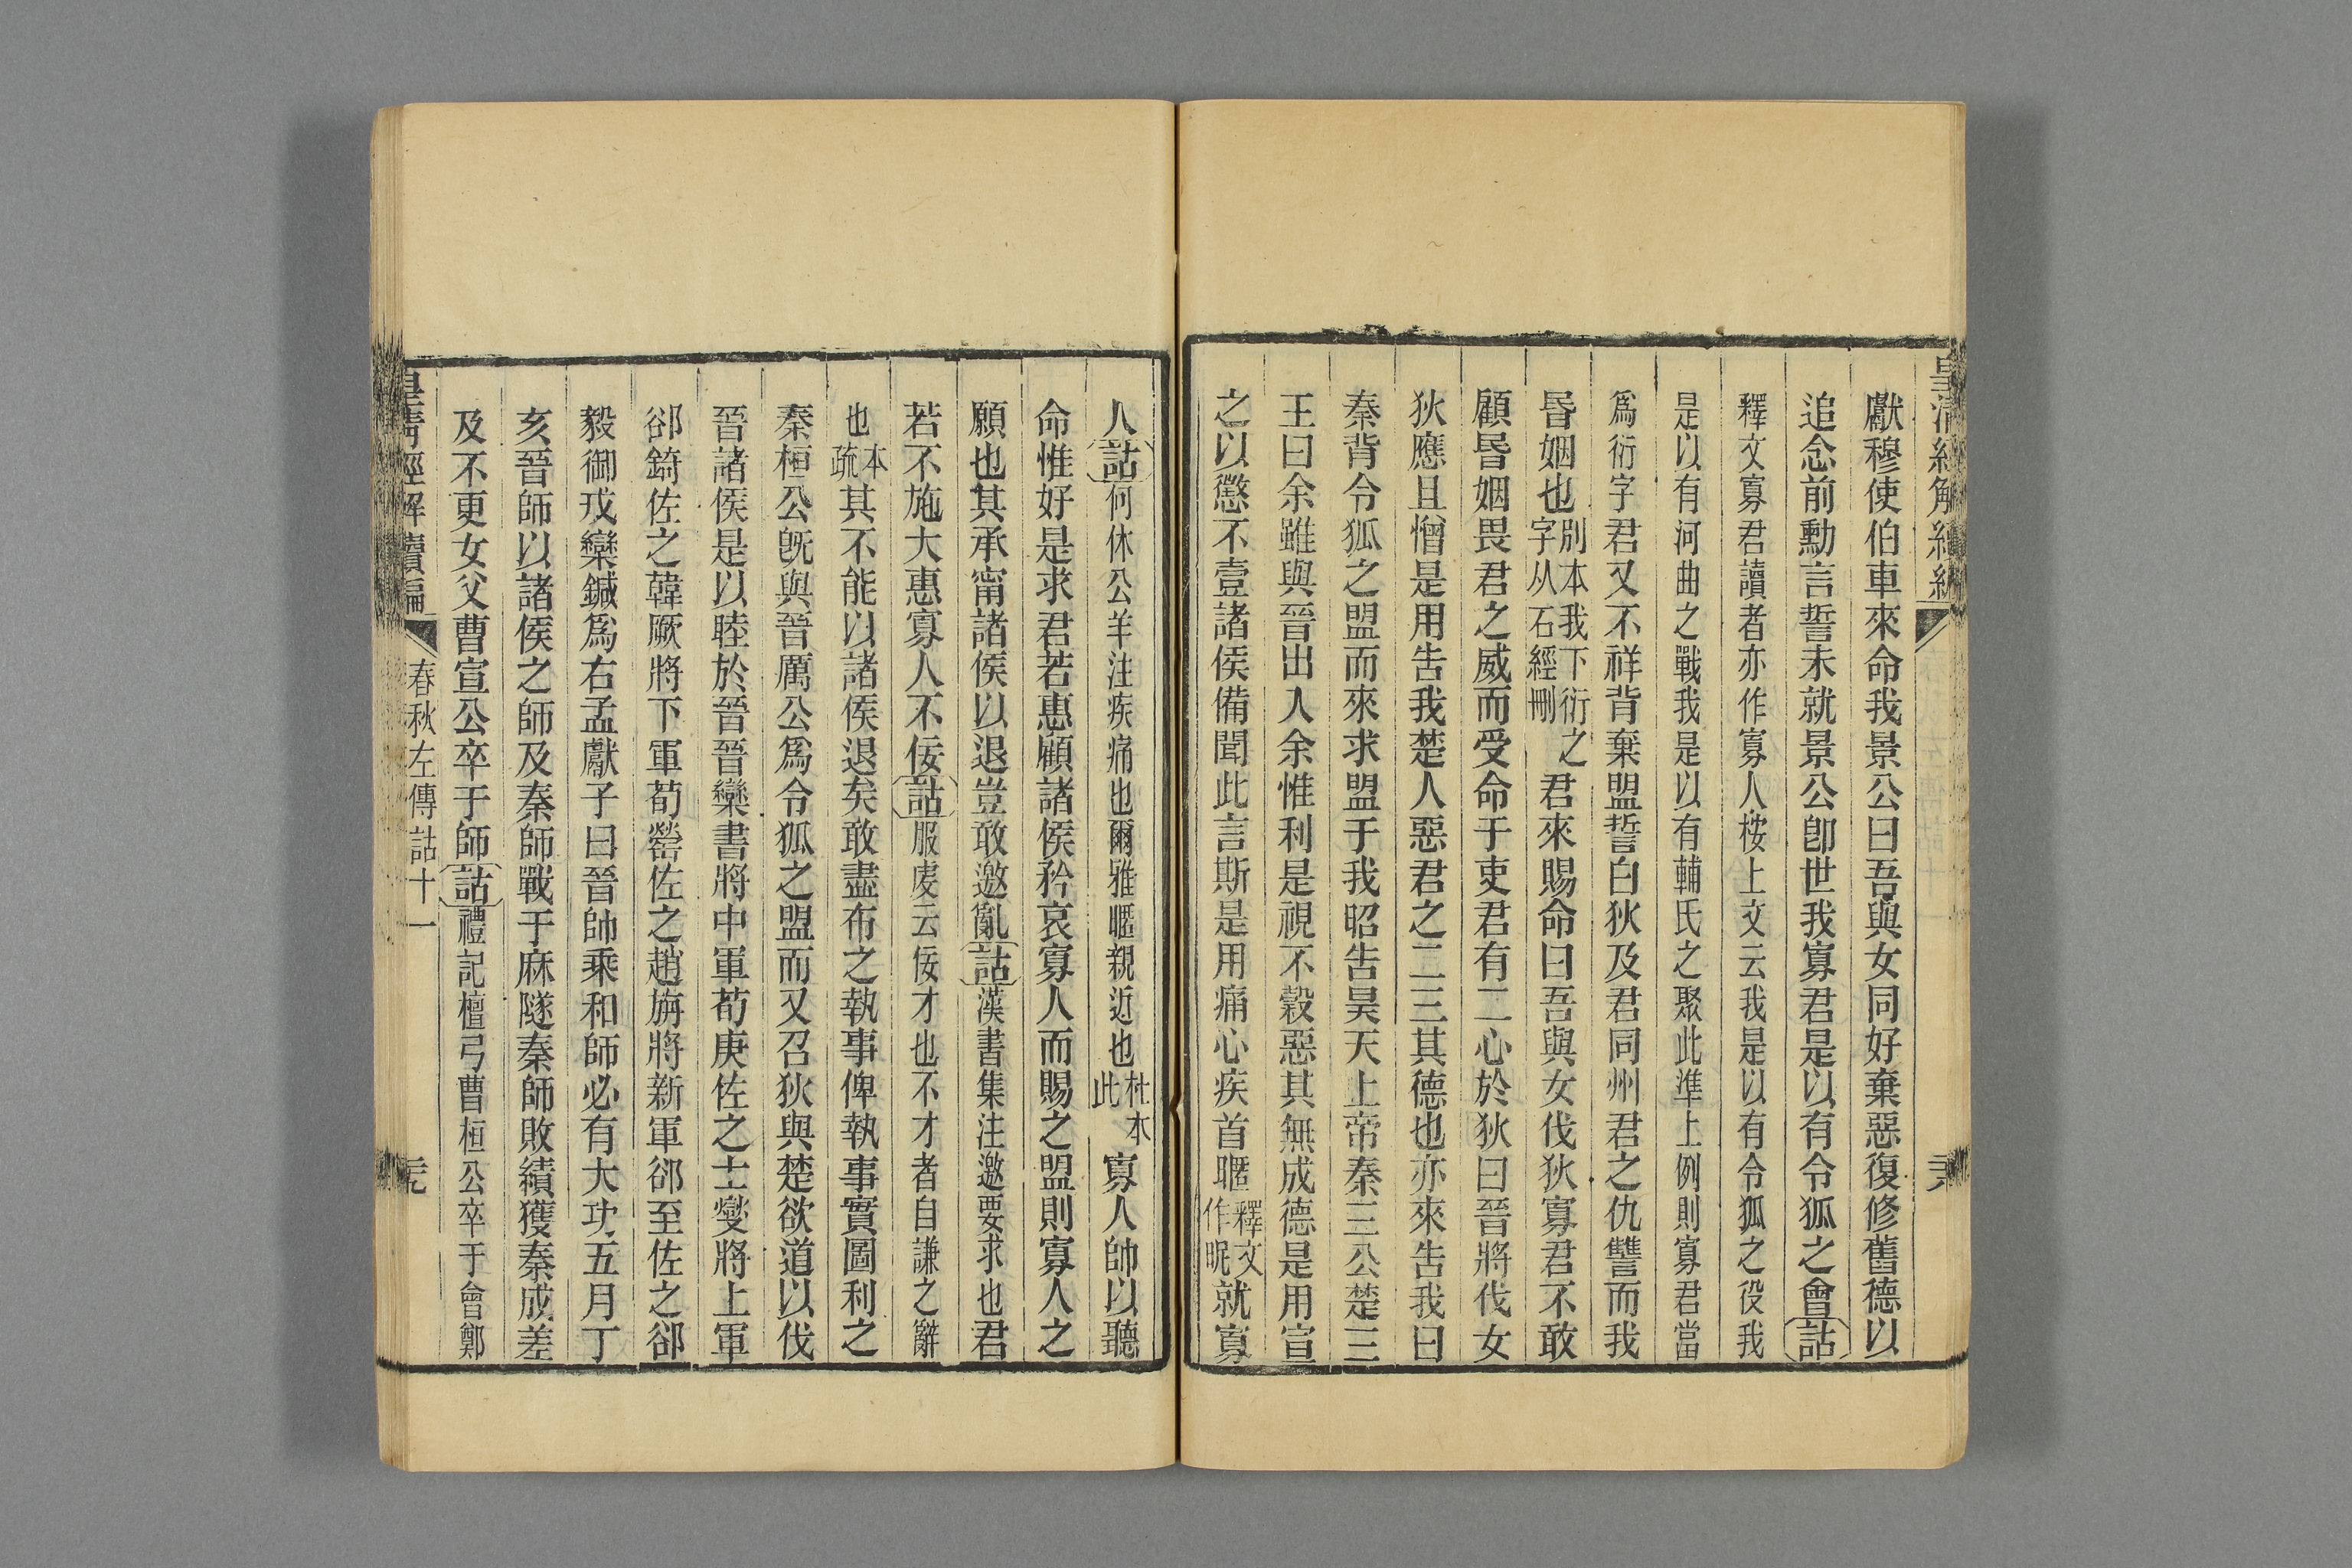 獻穆使伯車來命我景公曰吾與女同好棄惡復修舊德以
追念前勳言誓未就景公卽世我寡君是以有令狐之會詁
釋文寡君讀者亦作寡人桉上文云我是以有令狐之役我
是以有河曲之戰我是以有輔氏之聚此準上例則寡君當
爲衍字君又不祥背棄盟誓白狄及君同州君之仇讐而我
昏姻也別本我下衍之字从石經刪君來賜命曰吾與女伐狄寡君不敢
顧昏姻畏君之威而受命于吏君有二心於狄曰晉將伐女
狄應且憎是用告我楚人惡君之二三其德也亦來告我曰
秦背令狐之盟而來求盟于我昭告昊天上帝秦三公楚三
王曰余雖與晉出入余惟利是視不穀惡其無成德是用宣
之以懲不壹諸侯備聞此言斯是用痛心疾首暱釋文作昵就寡
人詁何休公羊注疾痛也爾雅暱親近也杜本此寡人帥以聽
命惟好是求君若惠顧諸侯矜哀寡人而賜之盟則寡人之
願也其承甯諸侯以退豈敢邀亂詁漢書集注邀要求也君
若不施大惠寡人不佞詁服虔云佞才也不才者自謙之辭
也本疏其不能以諸侯退矣敢盡布之執事俾執事實圖利之
秦桓公旣與晉厲公爲令狐之盟而又召狄與楚欲道以伐
晉諸侯是以睦於晉晉欒書將中軍荀庚佐之士燮將上軍
郤錡佐之韓厥將下軍荀罃佐之趙旃將新軍郤至佐之郤
毅御戎欒鍼爲右孟獻子曰晉帥乘和師必有大功五月丁
亥晉師以諸侯之師及秦師戰于麻隧秦師敗績獲秦成差
及不更女父曹宣公卒于師詁禮記檀弓曹桓公卒于會鄭
皇淸經解續編 春秋左傳詁十一